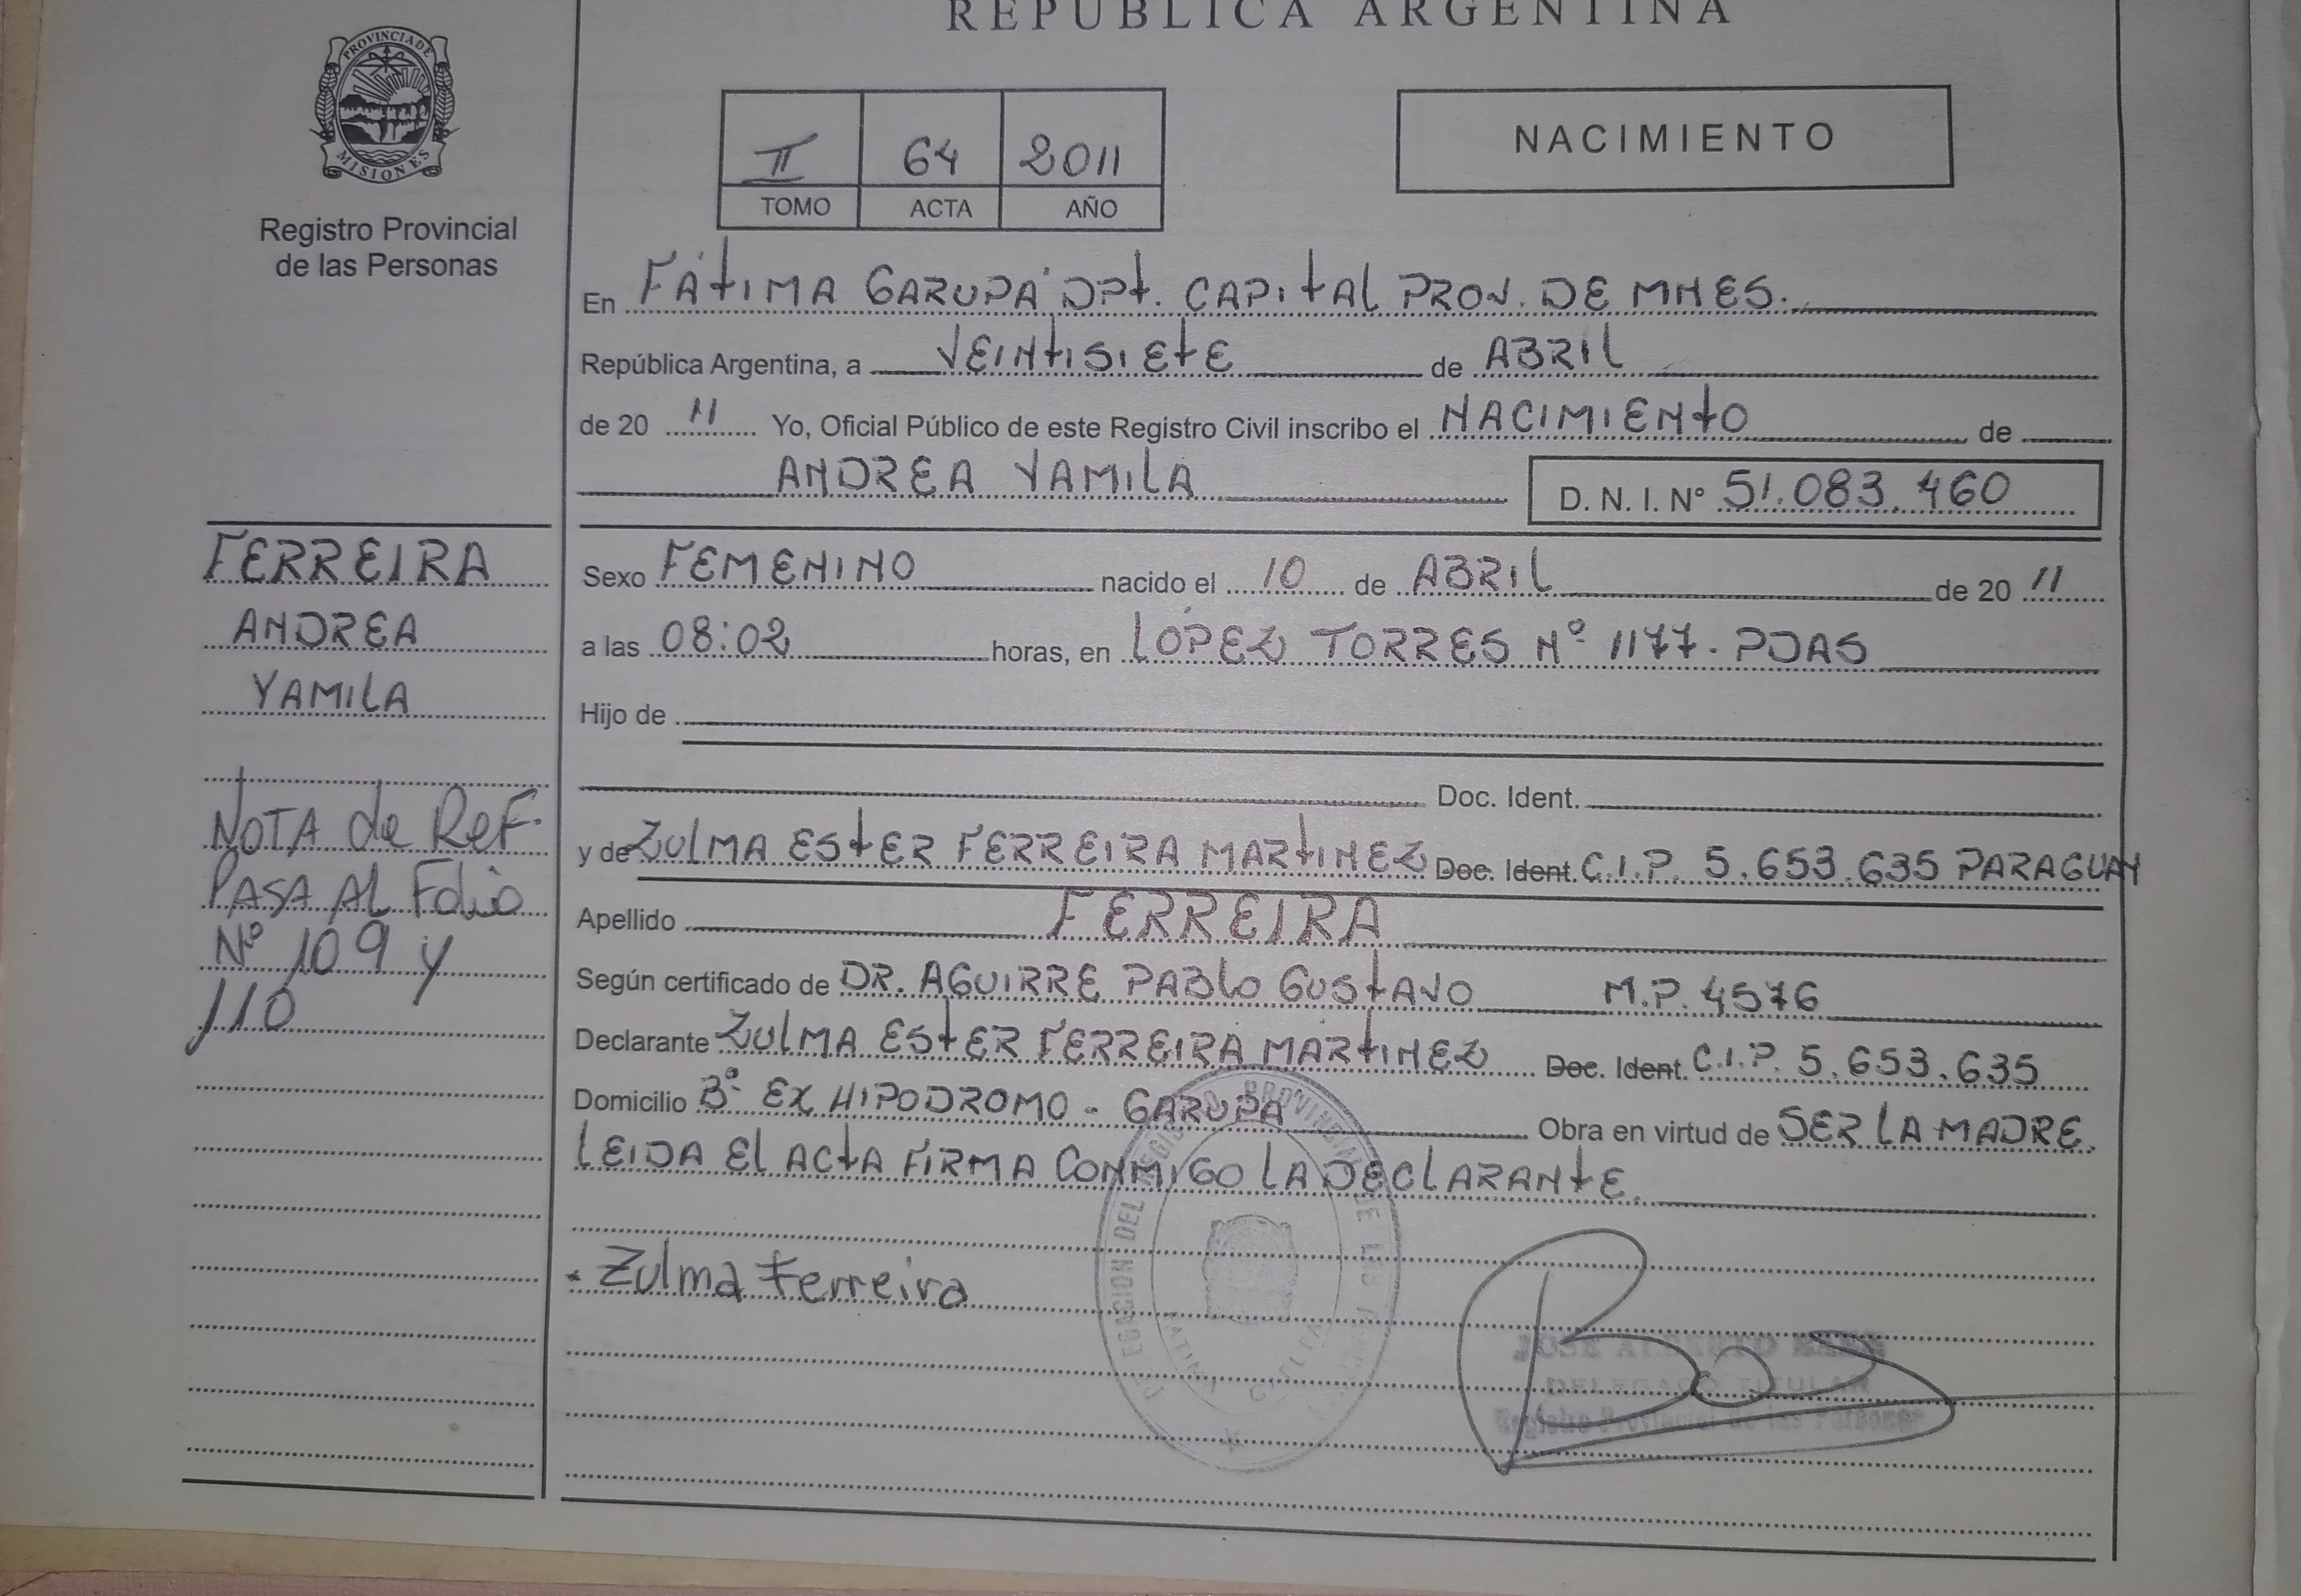 REPUBLICA ARGENTINA
PROVINCIA DE
MISIONES
Registro Provincial
de las Personas
II 64 2011
TOMO ACTA AÑO
NACIMIENTO
En FÁTIMA GARUPÁ DPt. CAPITAL PROV. DE MNES.
República Argentina, a VEINTISIETE de ABRIL
de 20 11 Yo, Oficial Público de este Registro Civil inscribo el NACIMIENTO de
ANDREA YAMILA D. N. I. N° 51.083.460
Sexo FEMENINO nacido el 10 de ABRIL de 20 11
a las 08:02 horas, en LÓPEZ TORRES Nº 1177. PDAS
Hijo de
Doc. Ident.
y de ZULMA ESTER FERREIRA MARTINEZ Doc. Ident. C.I.P. 5.653.635 PARAGUAY
Apellido FERREIRA
Según certificado de DR. AGUIRRE PABLO GUSTAVO M.P. 4576
Declarante ZULMA ESTER FERREIRA MARTINEZ Doc. Ident. C.I.P. 5.653.635
Domicilio Bº EX HIPODROMO - GARUPA Obra en virtud de SER LA MADRE.
LEIDA EL ACTA FIRMA CONMIGO LA DECLARANTE.
Zulma Ferreira
FERREIRA
ANDREA
YAMILA
NOTA de REF.
PASA AL Folio
Nº 109 y
110
DELEGACION DEL REGISTRO PROVINCIAL DE LAS
JOSE ALBERTO
DELEGADO TITULAR
Registro Provincial de las Personas